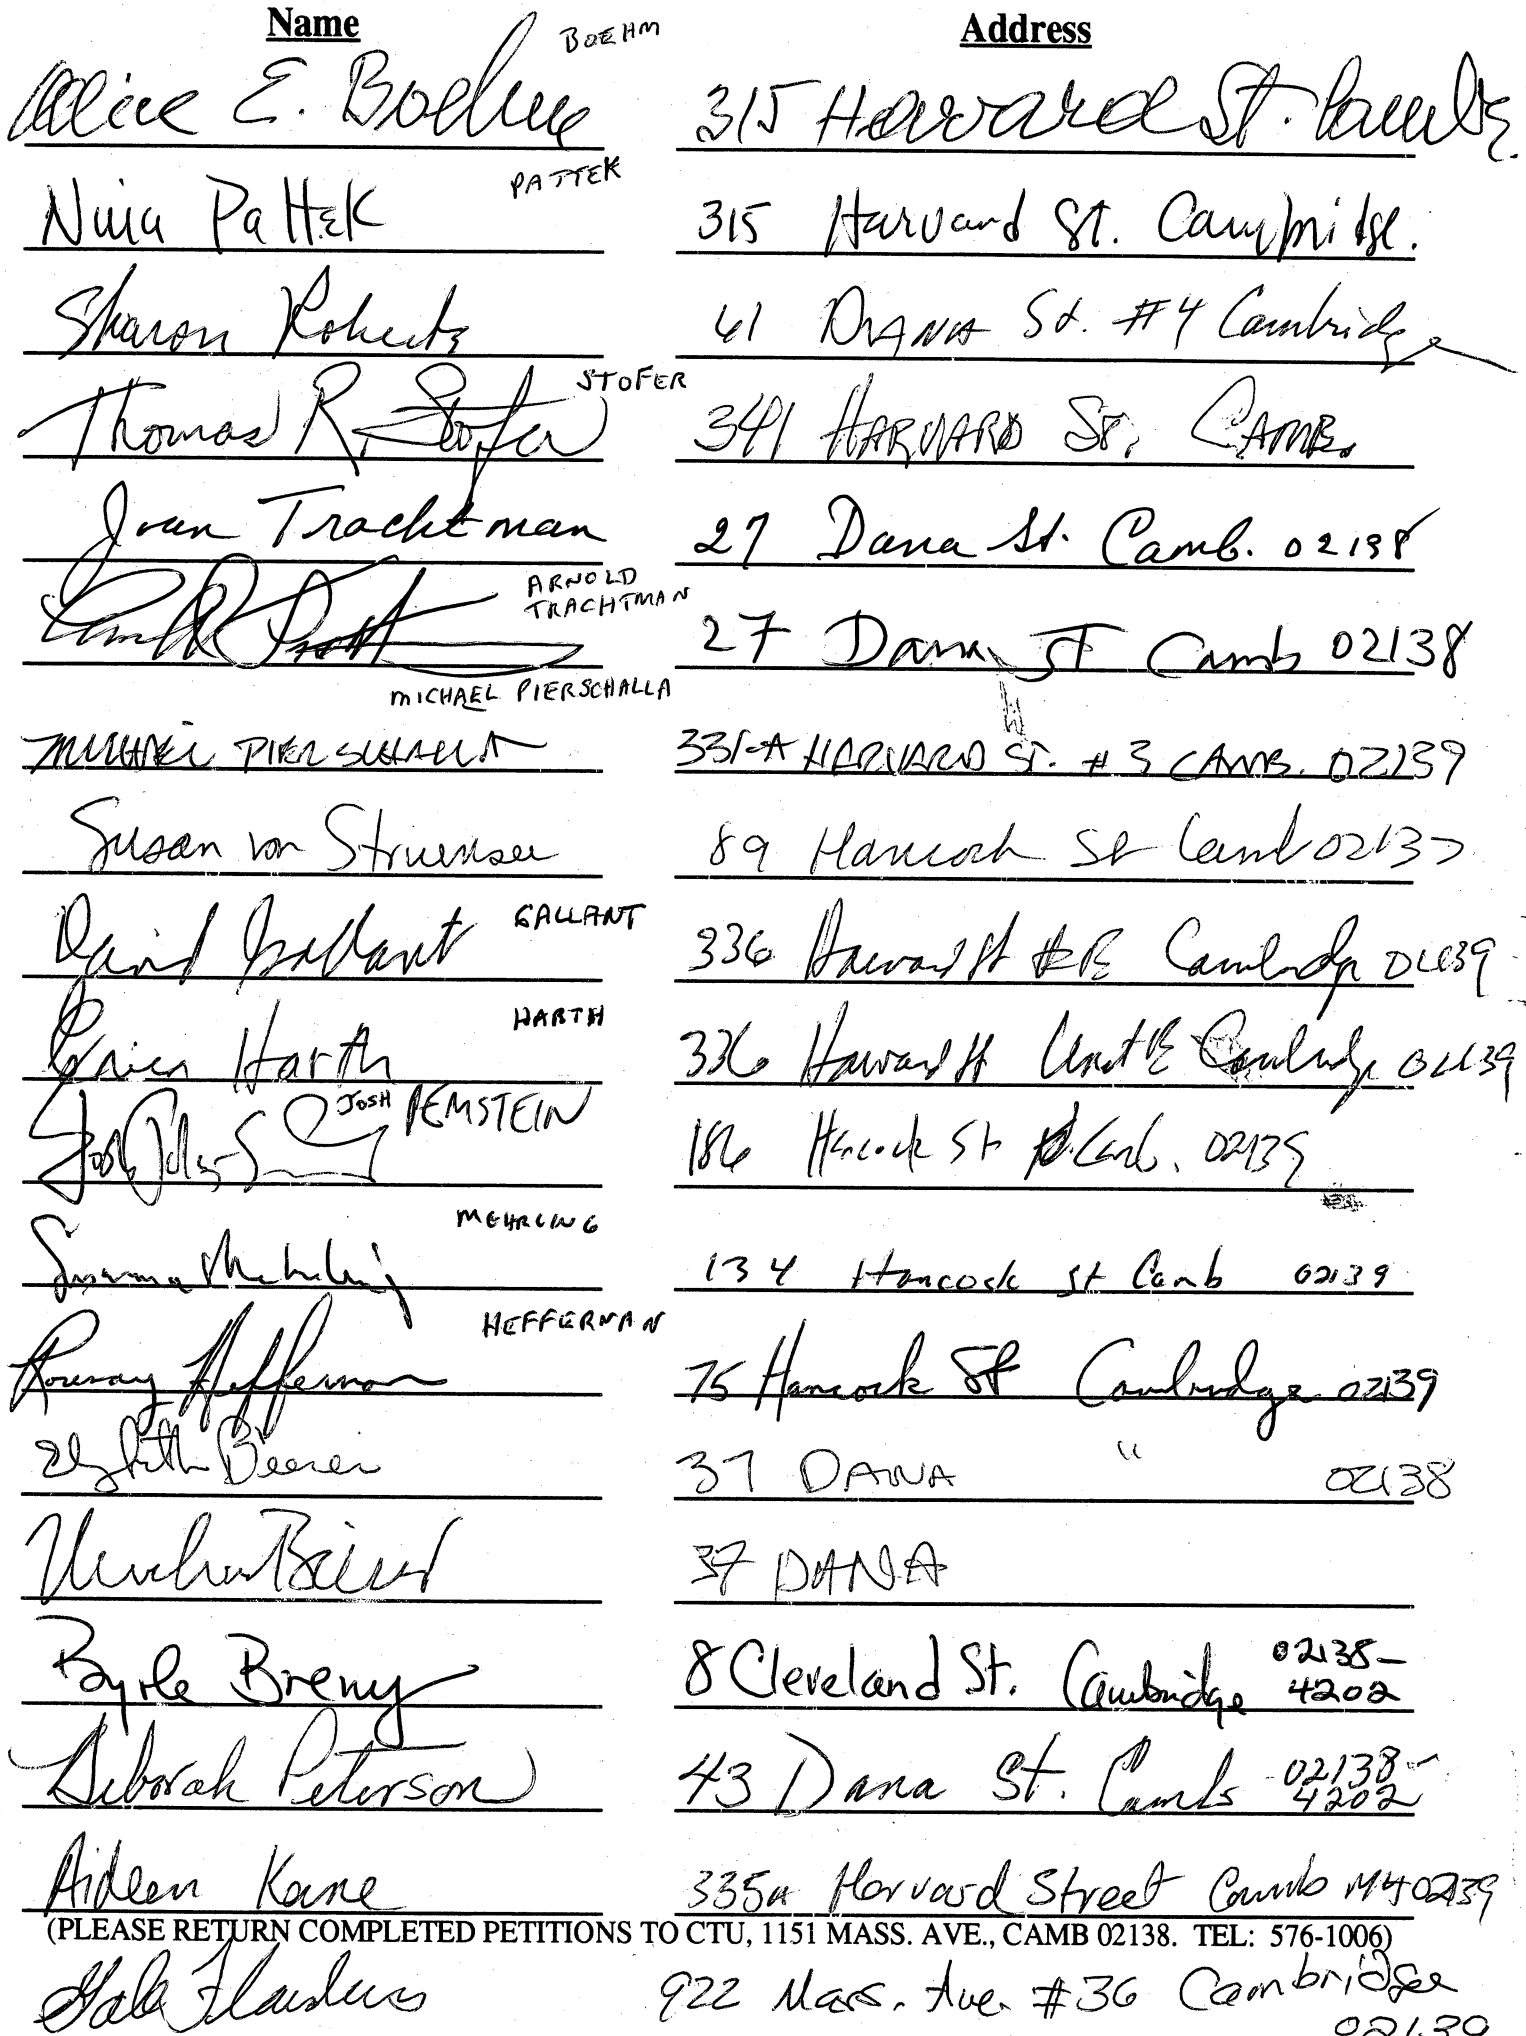 Name Address
BOEHM
Alice E. Boehm 315 Harvard St. Camb.
PATTEK
Nina Pattek 315 Harvard St. Cambridge.
Sharon Roberts 41 DIANA St. #4 Cambridge
STOFER
Thomas R. Stofer 341 HARVARD St. CAMB.
Joan Trachtman 27 Dana St. Camb. 02138
ARNOLD
TRACHTMAN
27 Dana ST Camb 02138
MICHAEL PIERSCHALLA
MICHAEL PIERSCHALLA 331-A HARVARD ST. #3 CAMB. 02139
Susan von Struensee 89 Hancock St Camb 0213
GALLANT
David Gallant 336 Harvard St Cambridge 02139
HARTH
Erica Harth 336 Harvard St Unit E Cambridge 02139
JOSH PEMSTEIN
186 Hancock St Camb. 02139
MEHRLING
Susanna Mehrling 134 Hancock St Camb 02139
HEFFERNAN
Rosemary Heffernan 75 Hancock St Cambridge 02139
37 DANA " 02138
37 DANA
Byrle Breny 8 Cleveland St. Cambridge 02138-
4202
Deborah Peterson 43 Dana St. Camb 02138-
4202
Aideen Kane 335a Harvard Street Camb MA 02139
(PLEASE RETURN COMPLETED PETITIONS TO CTU, 1151 MASS. AVE., CAMB 02138. TEL: 576-1006)
Gale Flanders 922 Mass. Ave. #36 Cambridge
02139